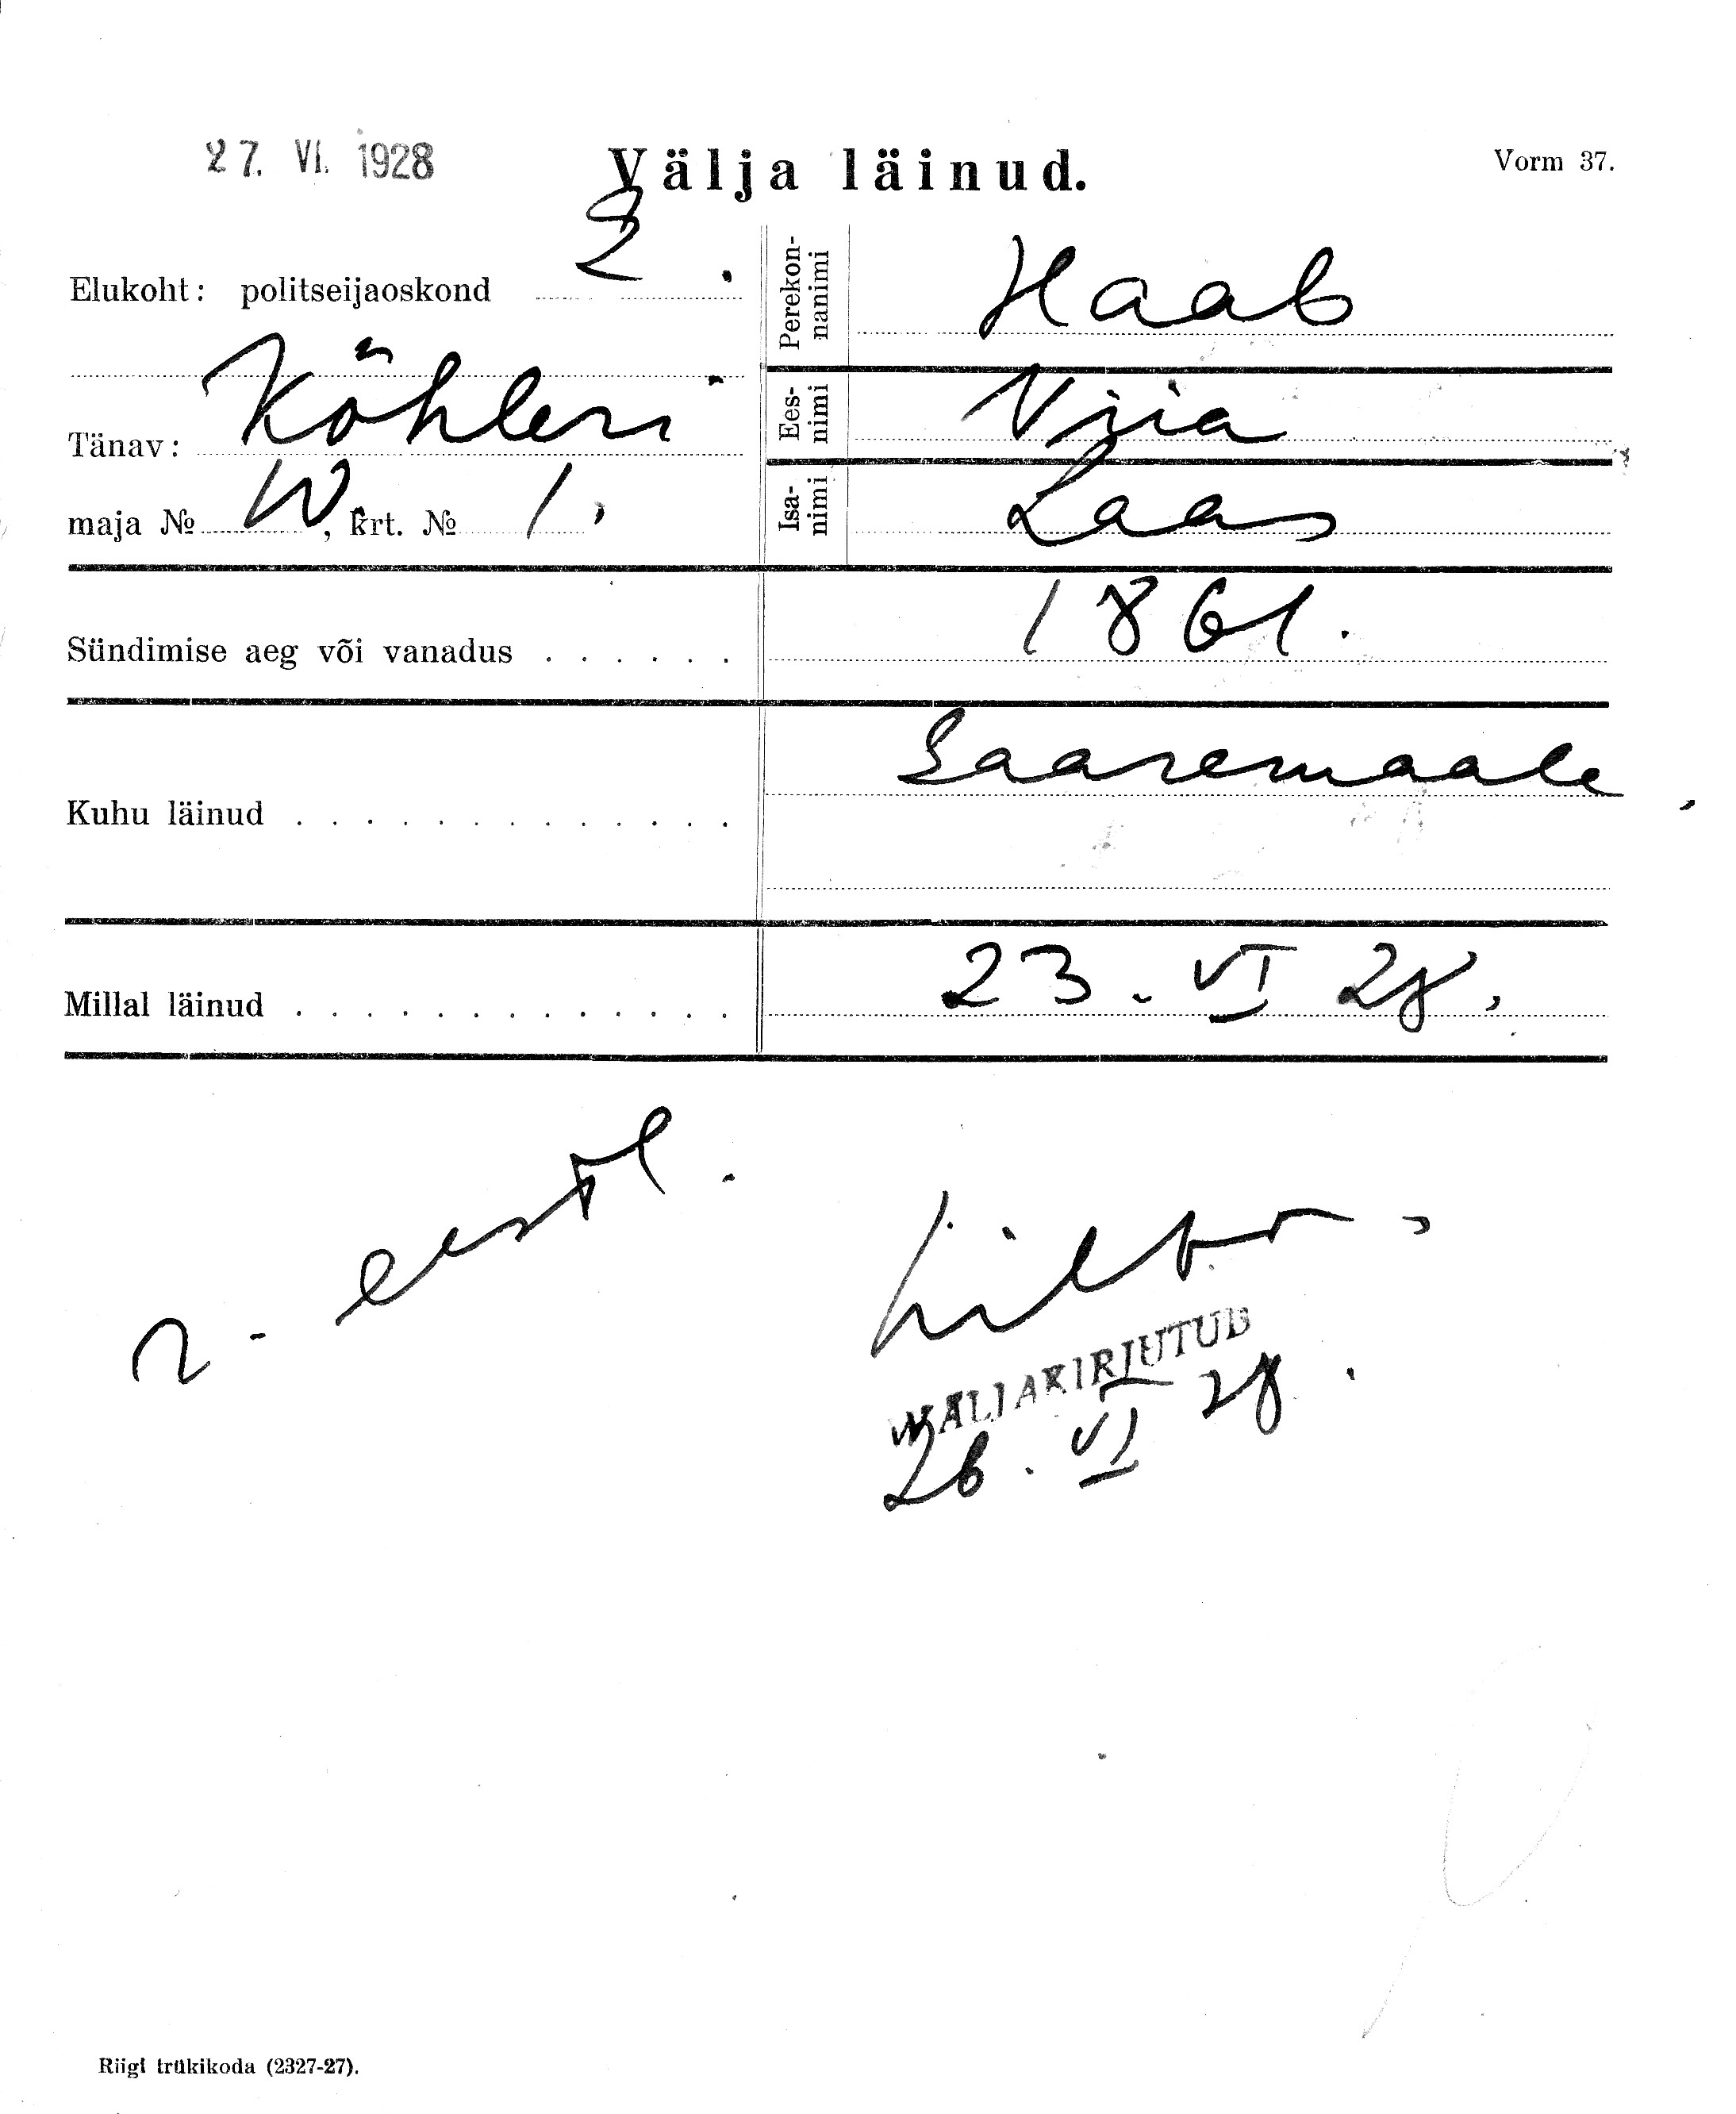 27. VI. 1928
Välja läinud.
Vorm 37.
Elukoht: politseijaoskond 2.
Tänav: Köhleri
maja № 10, krt. № 1.
Perekonnanimi Haab
Eesnimi Viia
Isanimi Laas
Sündimise aeg või vanadus . . . . . . 1861.
Kuhu läinud . . . . . . . . . . . . . Saaremaale.
Millal läinud . . . . . . . . . . . . . 23. VI 28.
WÄLJAKIRJUTUD
26. VI 28.
Riigi trükikoda (2327-27).